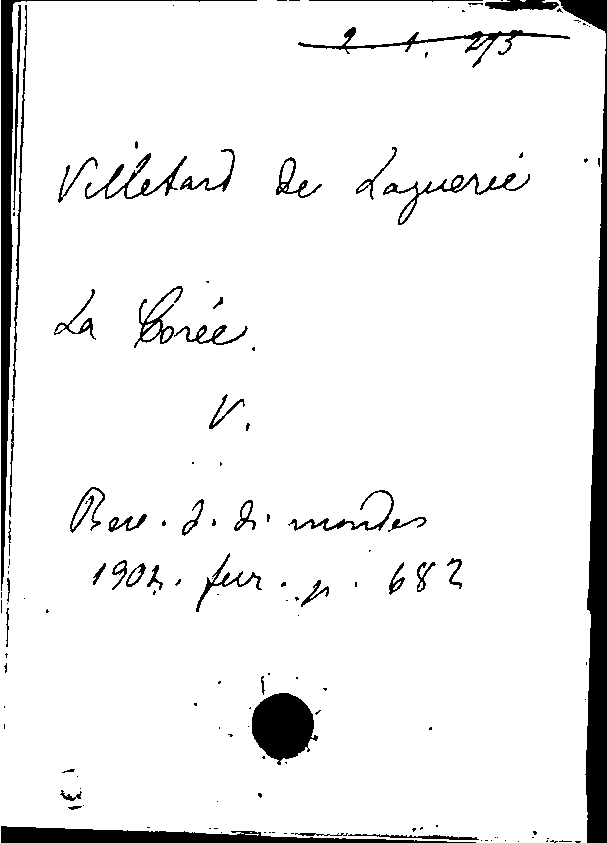 2. 1. 2/5
Villetard de Laguerie
La Corée.
V.
Rev. d. d. mondes
190 fevr. p. 682